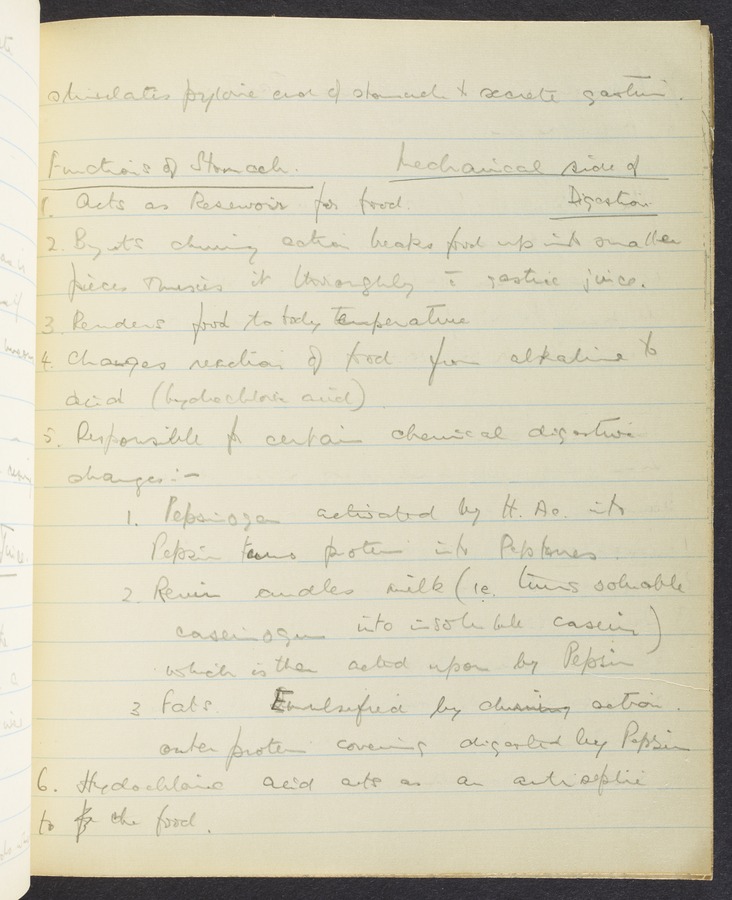 stimulates pyloric end of stomach to secrete gastrin.
Functions of Stomach. Mechanical side of
Digestion
1. Acts as Reservoir for food.
2. By its churning action breaks food up into smaller
pieces & mixes it thoroughly c̄ gastric juice.
3. Renders food to body temperature
4. Changes reaction of food from alkaline to
acid (hydrochloric acid).
5. Responsible for certain chemical digestive
changes:-
1. Pepsinogen activated by H. Ac. into
Pepsin turns protein into Peptones.
2. Renin curdles milk (ie. turns soluable
caseinogen into insoluble casein)
which is then acted upon by Pepsin
3 Fats. Emulsified by churning action.
outer protein covering digested by Pepsin
6. Hydrochloric acid acts as an antiseptic
to the food.